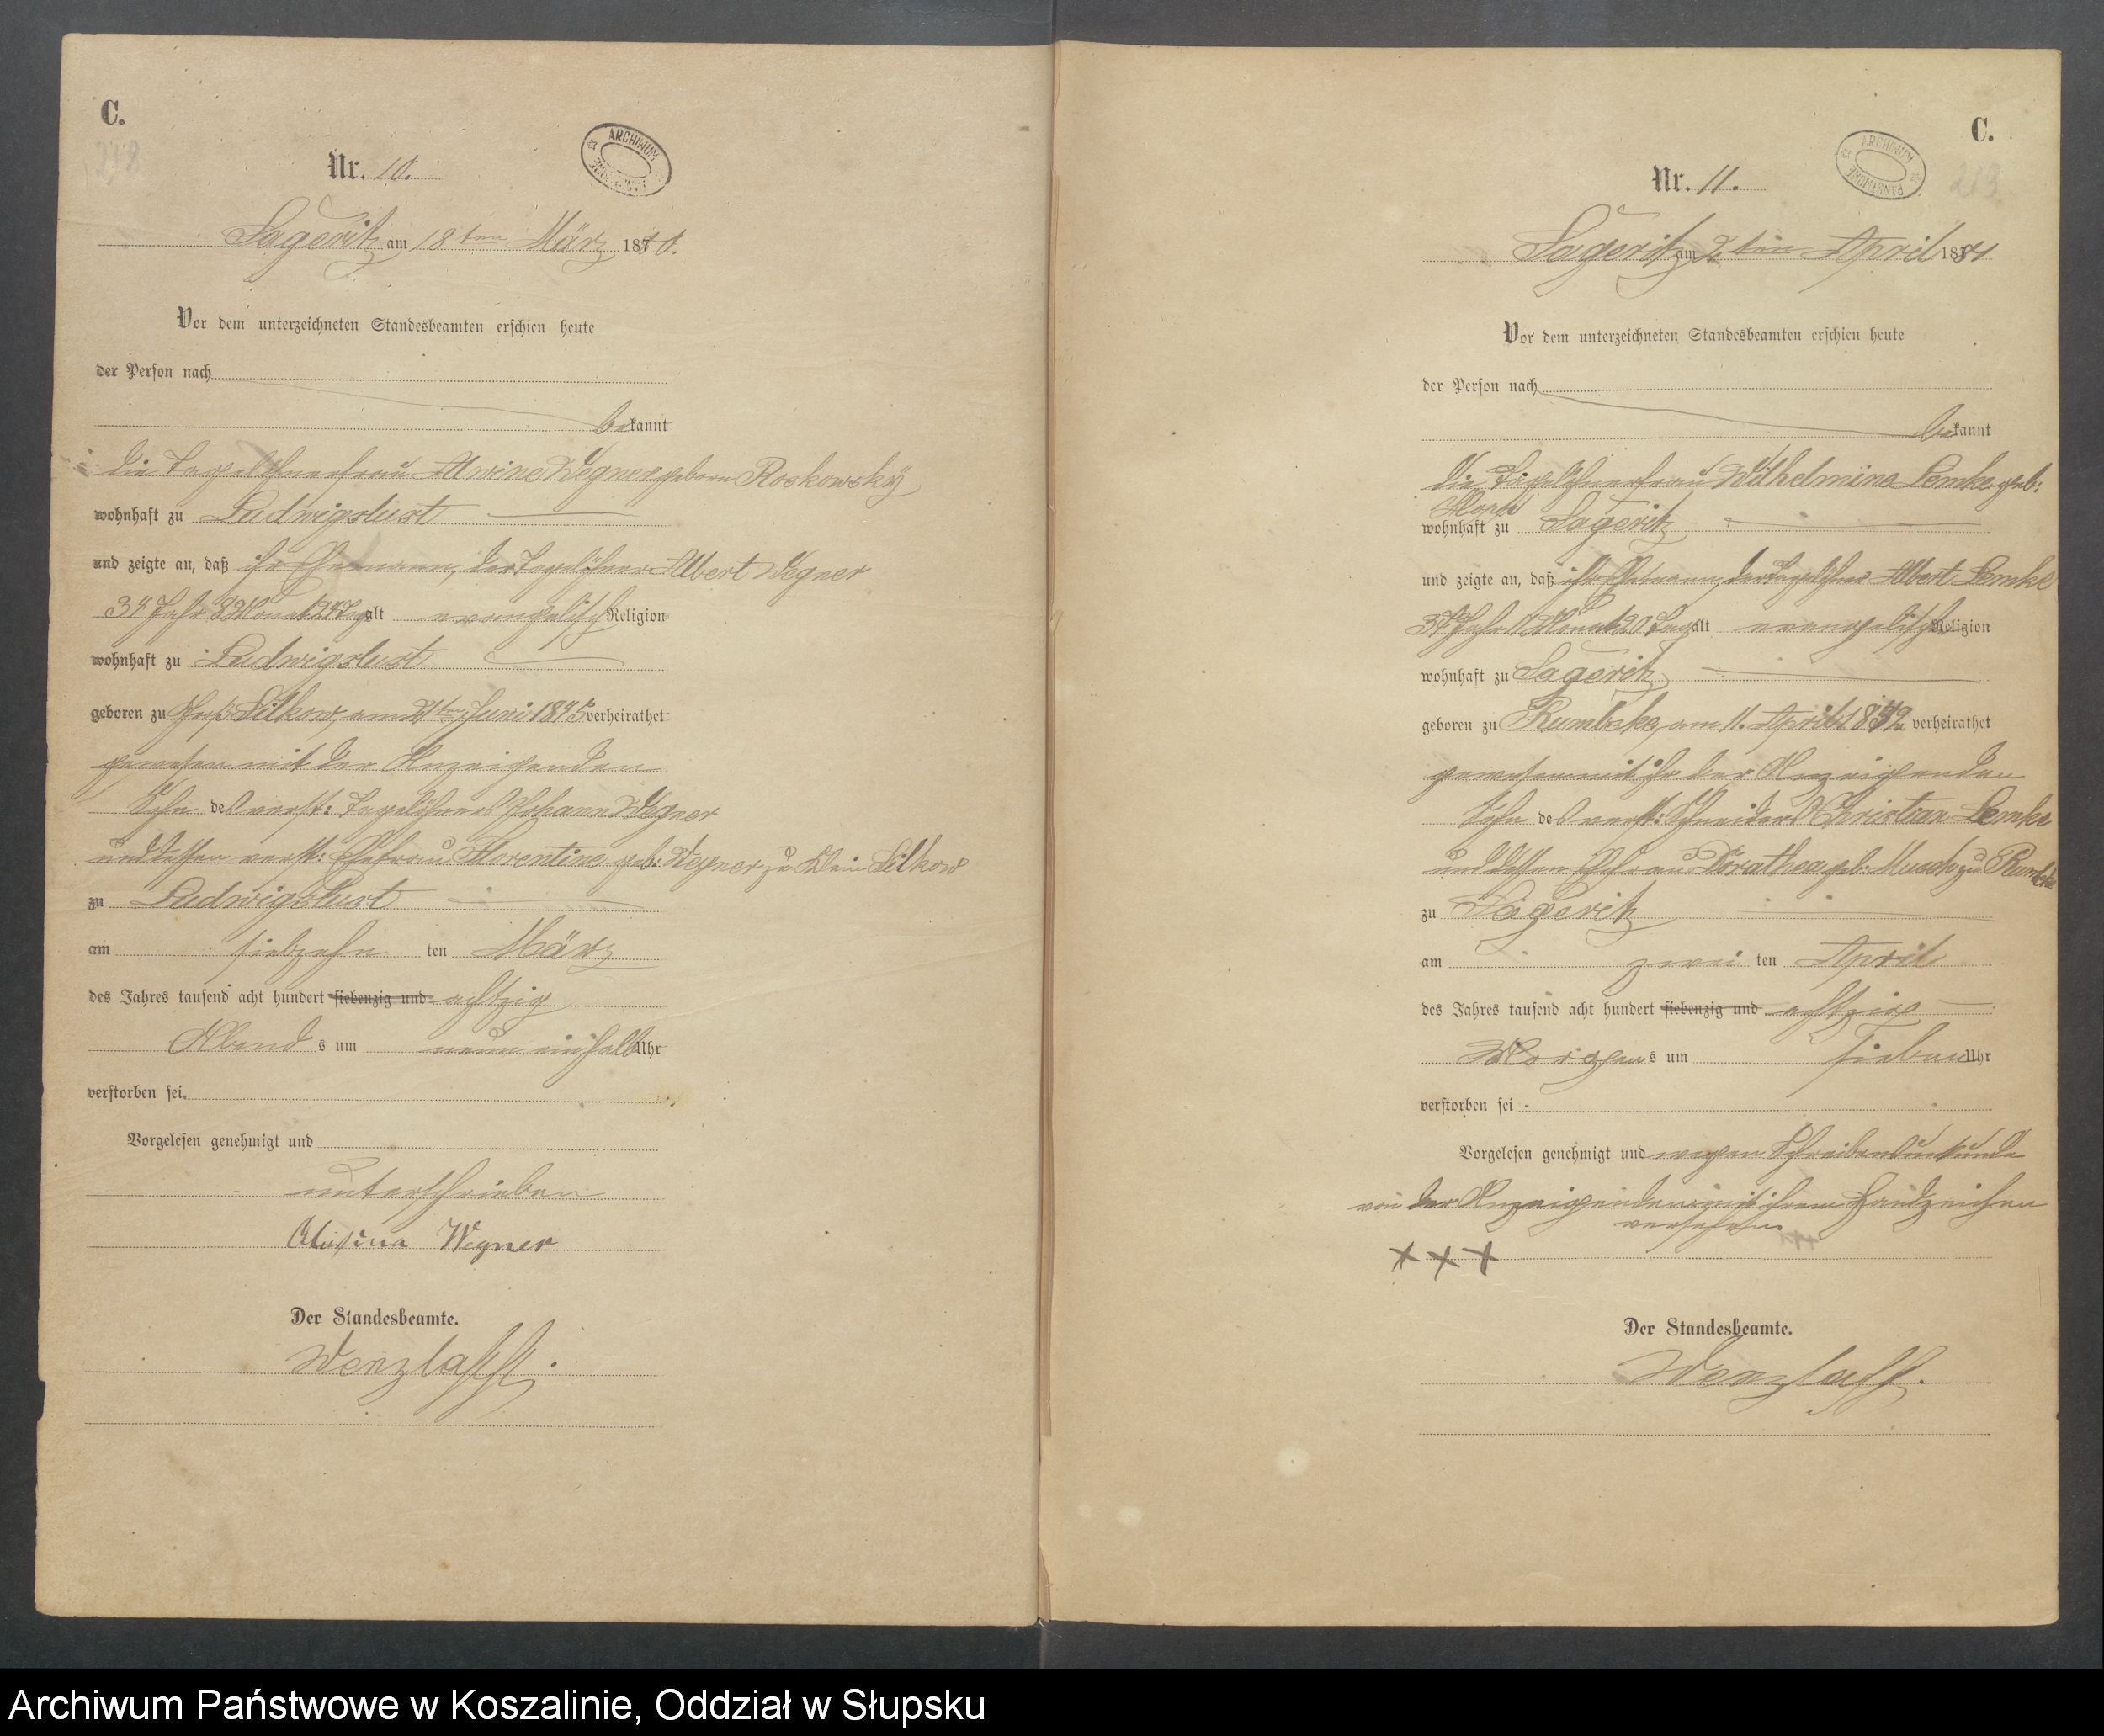 C.
Nr. 10.
ARCHIWUM
Sageritz am 18ten März 1880.
Vor dem unterzeichneten Standesbeamten erschien heute
der Person nach
bekannt
die Tagelöhnerfrau Alwine Wegner geborn Roskowsky
wohnhaft zu Ludwigslust
und zeigte an, daß ihr Ehemann, der Tagelöhner Albert Wegner
34 Jahr 8 Monat 24 Tag alt evangelisch Religion
wohnhaft zu Ludwigslust
geboren zu Groß Silkow, am ten Juni 1845 verheirathet
gewesen mit der Anzeigenden
Sohn des verst: Tagelöhners Johann Wegner
und dessen verst: Ehefrau Florentine geb: Wegner zu Klein Silkow
zu Ludwigslust
am siebzehn ten März
des Jahres tausend acht hundert siebenzig und achtzig
Abend s um neun einhalb Uhr
verstorben sei.
Vorgelesen genehmigt und
unterschrieben
Wegner
Der Standesbeamte.
Wenzlaff.
C.
219
Nr. 11.
ARCHIWUM PAŃSTWOWE
Sageritz am 2ten April 188
Vor dem unterzeichneten Standesbeamten erschien heute
der Person nach
bekannt
die Tagelöhnerfrau Wilhelmine Lemke geb:
wohnhaft zu Sageritz
und zeigte an, daß ihr Ehemann, der Tagelöhner Albert Lemke
37 Jahr 11 Monat 20 Tag alt evangelisch Religion
wohnhaft zu Sageritz
geboren zu Rumbske, am 11. April 1842 verheirathet
gewesen mit ihr der Anzeigenden
Sohn des verst: Schneiders Christian Lemke
und dessen Ehefrau Dorathea geb: Musch zu Rumbske
zu Sageritz
am zwei ten April
des Jahres tausend acht hundert siebenzig und achtzig
Morgens um sieben Uhr
verstorben sei.
Vorgelesen genehmigt und wegen Schreibensunkunde
von der Anzeigenden mit ihrem Handzeichen
versehen
+ + +
Der Standesbeamte.
Wenzlaff.
Archiwum Państwowe w Koszalinie, Oddział w Słupsku